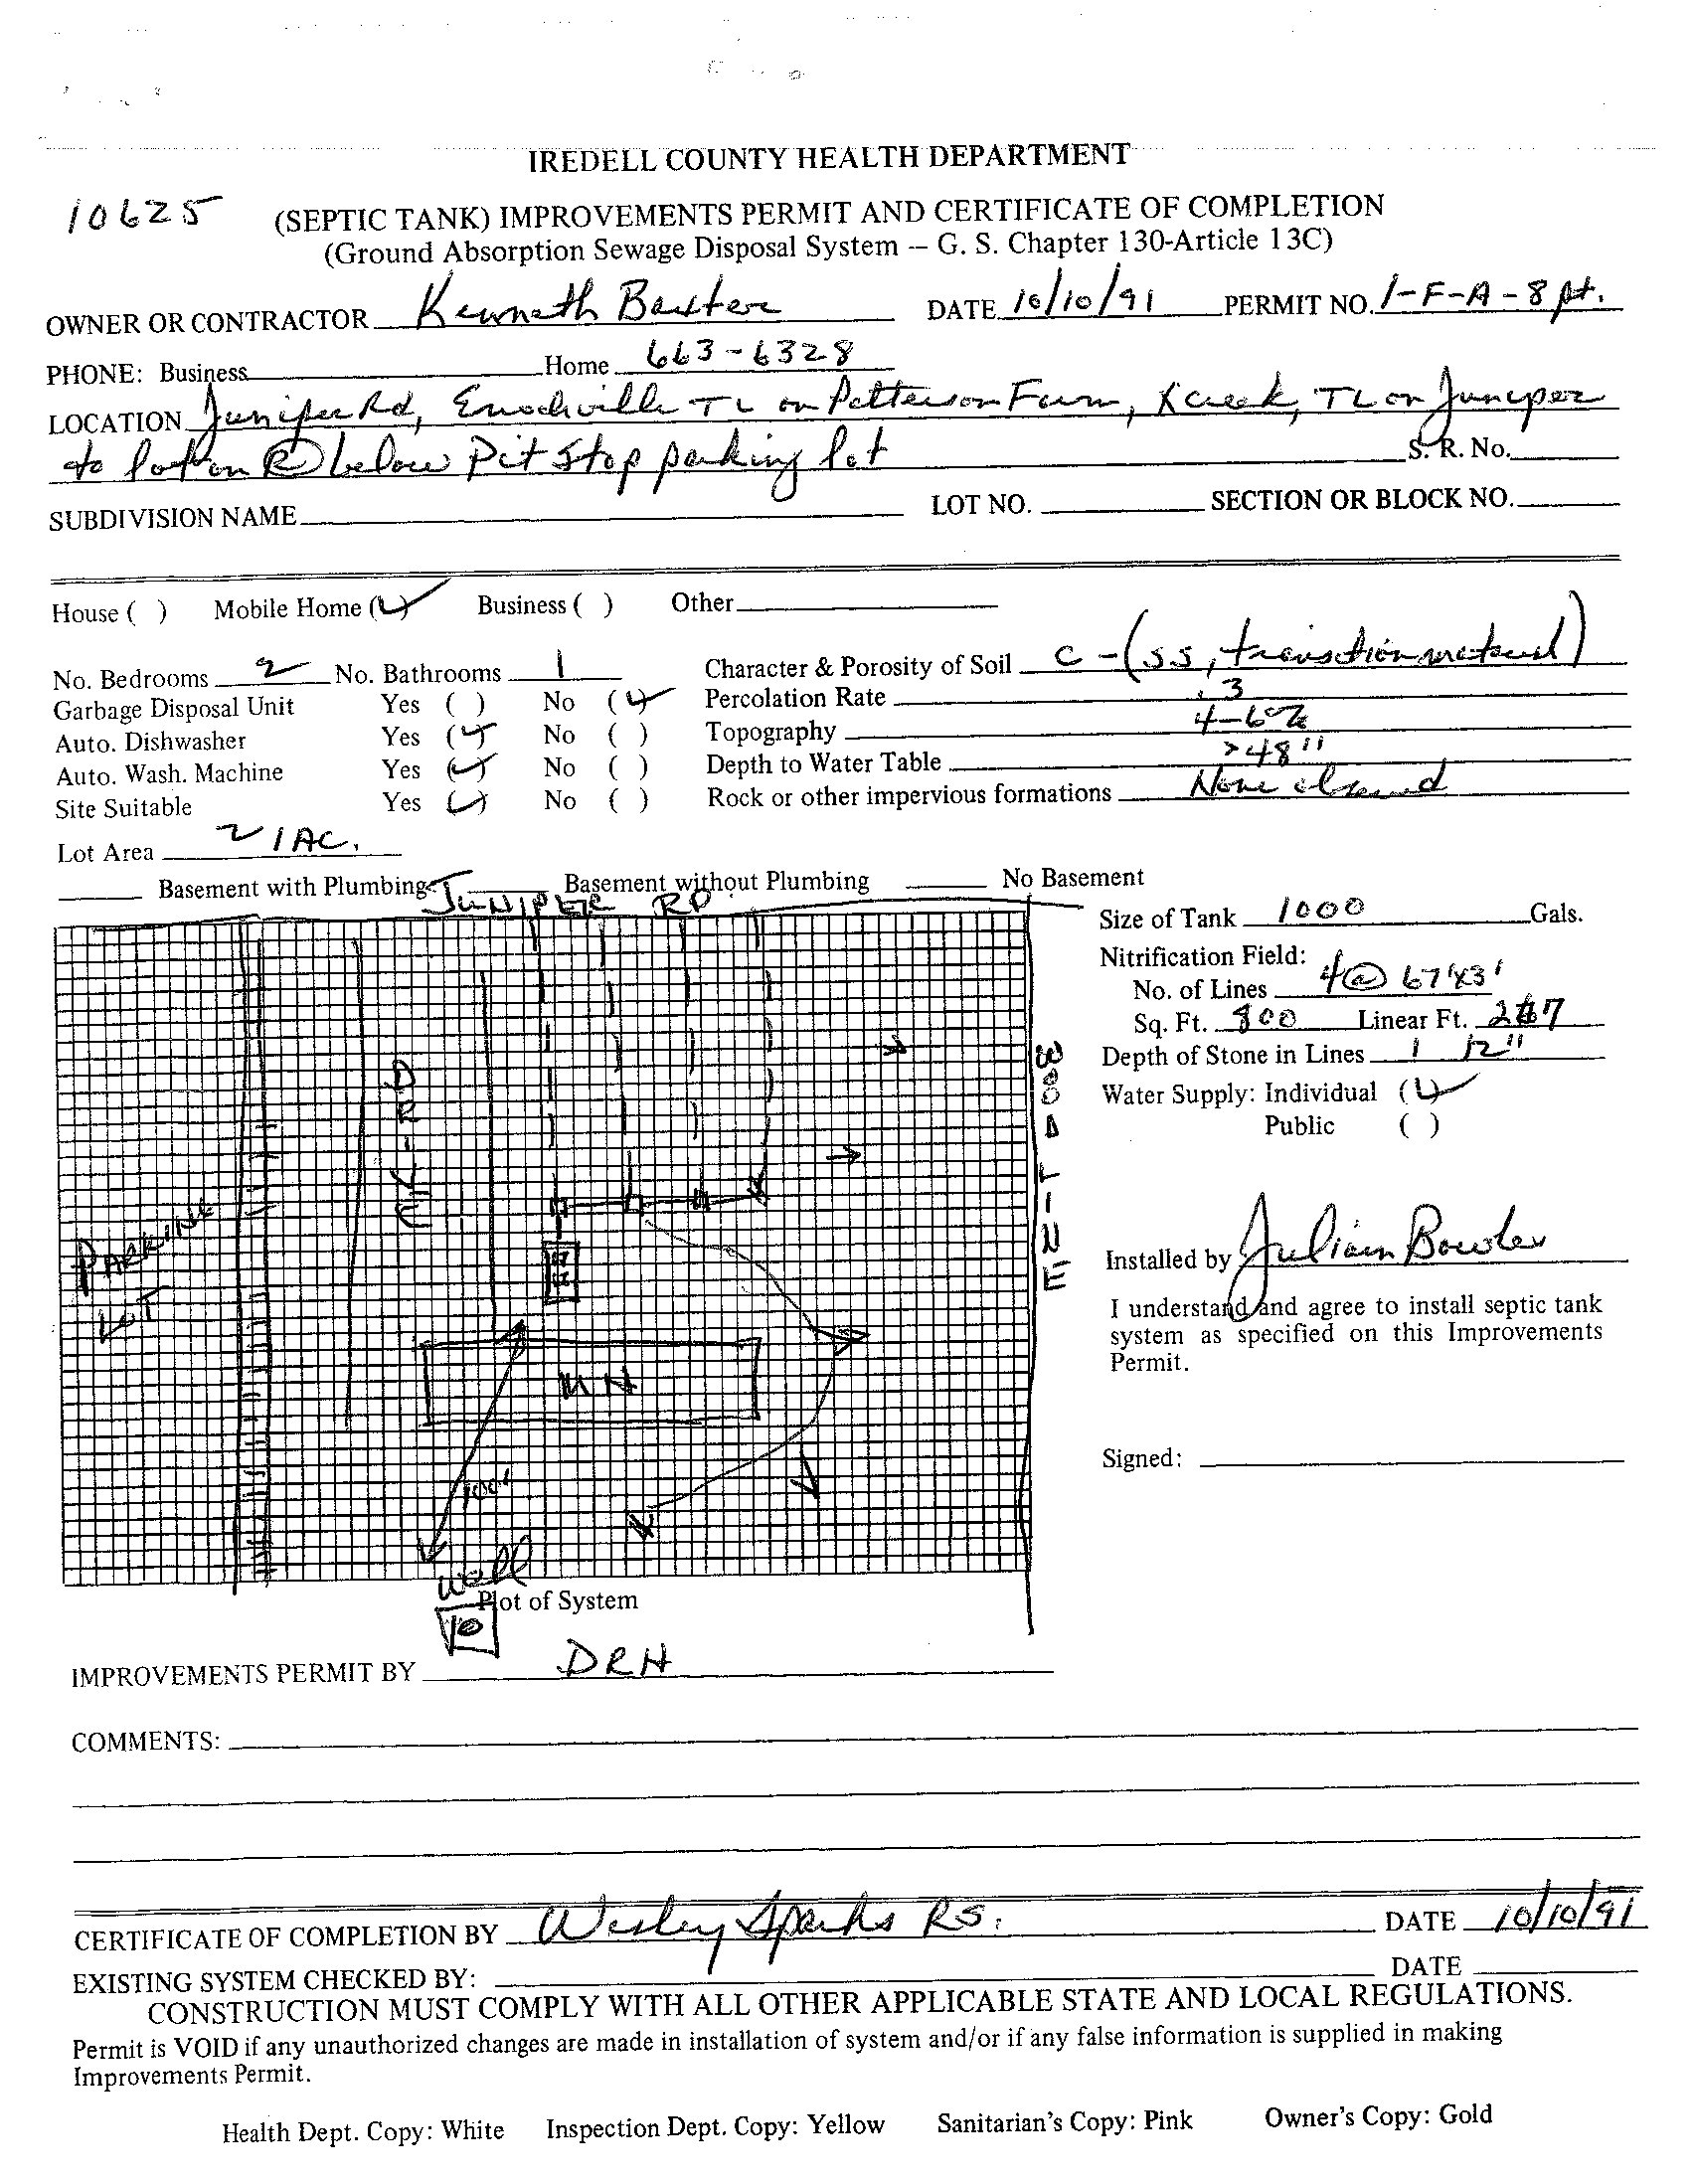 IREDELL COUNTY HEALTH DEPARTMENT
10625 (SEPTIC TANK) IMPROVEMENTS PERMIT AND CERTIFICATE OF COMPLETION
(Ground Absorption Sewage Disposal System – G. S. Chapter 130-Article 13C)
OWNER OR CONTRACTOR Kenneth Baxter DATE 10/10/91 PERMIT NO. 1-F-A-8 pt.
PHONE: Business Home 663-6328
LOCATION Juniper Rd, Enochville TL on Patterson Farm, X creek, TL on Juniper
to lot on R below Pit Stop parking lot S. R. No.
SUBDIVISION NAME LOT NO. SECTION OR BLOCK NO.
House ( ) Mobile Home (✓) Business ( ) Other
No. Bedrooms 2 No. Bathrooms 1 Character & Porosity of Soil C-(SS, transition material)
Garbage Disposal Unit Yes ( ) No (✓) Percolation Rate .3
Auto. Dishwasher Yes (✓) No ( ) Topography 4-6%
Auto. Wash. Machine Yes (✓) No ( ) Depth to Water Table >48"
Site Suitable Yes (✓) No ( ) Rock or other impervious formations None observed
Lot Area ~1AC.
Basement with Plumbing Basement without Plumbing No Basement
JUNIPER RD
Size of Tank 1000 Gals.
Nitrification Field:
No. of Lines 4@ 67'x3'
Sq. Ft. 800 Linear Ft. 267
Depth of Stone in Lines 12"
Water Supply: Individual (✓)
Public ( )
DRIVE
WOOD LINE
PARKING
LOT
MH
100'
well
Installed by Julian Bowles
I understand and agree to install septic tank
system as specified on this Improvements
Permit.
Signed:
Plot of System
IMPROVEMENTS PERMIT BY DRH
COMMENTS:
CERTIFICATE OF COMPLETION BY Wesley Sparks RS. DATE 10/10/91
EXISTING SYSTEM CHECKED BY: DATE
CONSTRUCTION MUST COMPLY WITH ALL OTHER APPLICABLE STATE AND LOCAL REGULATIONS.
Permit is VOID if any unauthorized changes are made in installation of system and/or if any false information is supplied in making
Improvements Permit.
Health Dept. Copy: White Inspection Dept. Copy: Yellow Sanitarian's Copy: Pink Owner's Copy: Gold